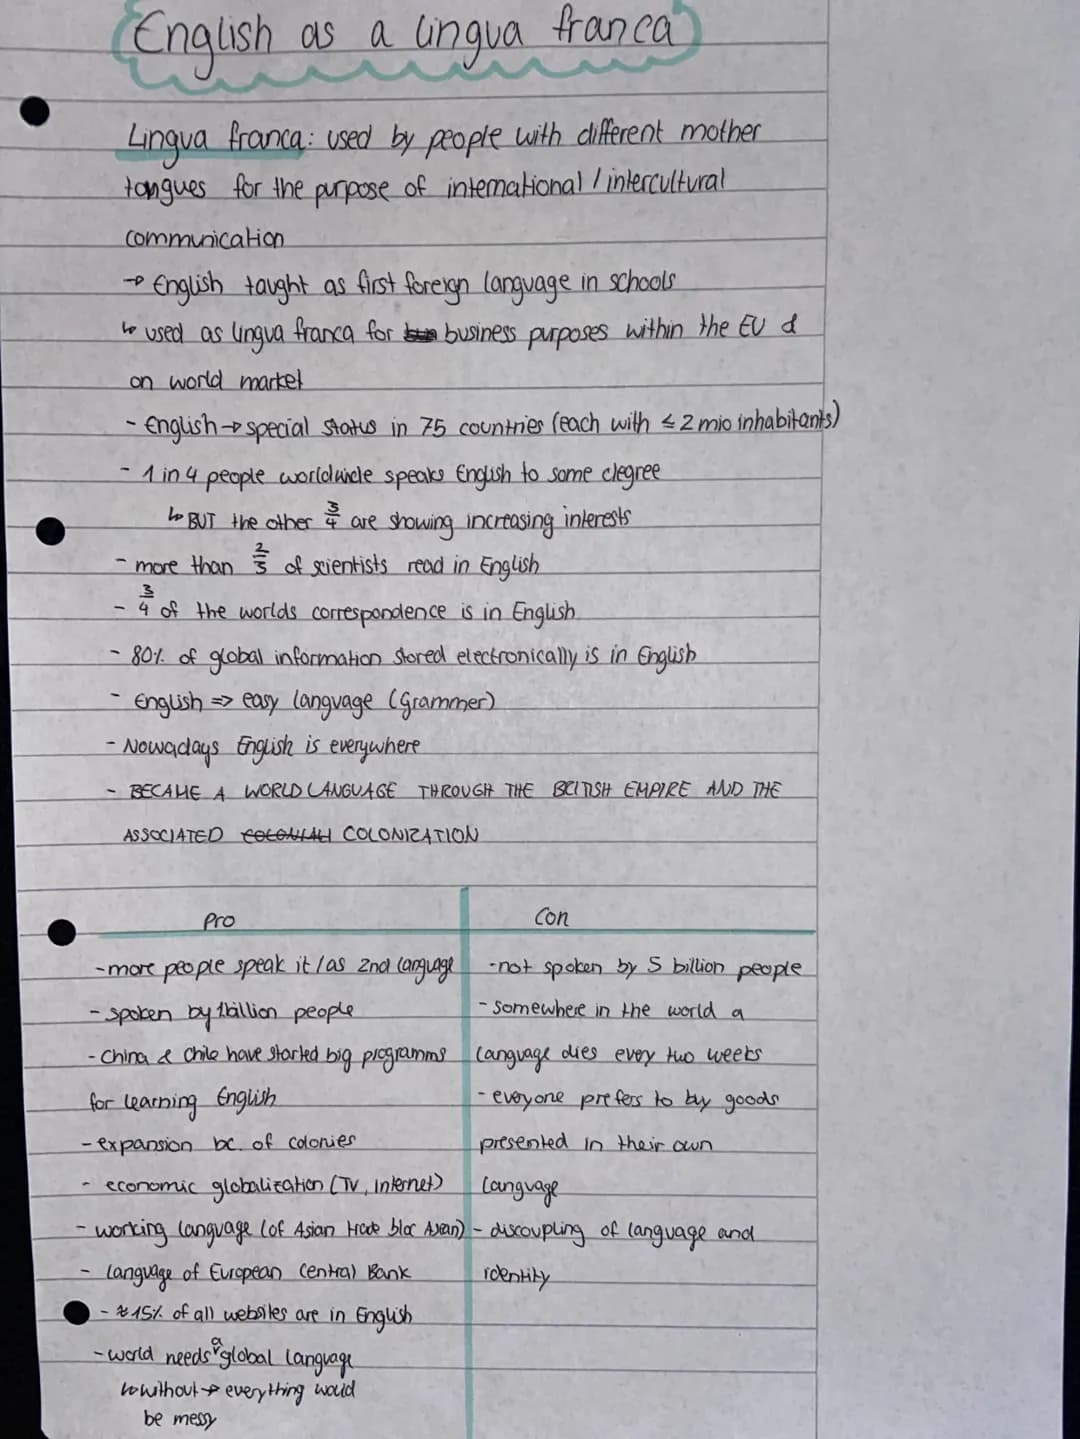 English as a lingua franca
Lingua franca: used by people with different mother
tongues for the purpose of international / intercultural
communication
→ English taught as first foreign language in schools
↳ used as lingua franca for business purposes within the EU &
on world market
- English → special status in 75 countries (each with ≤ 2 mio inhabitants)
- 1 in 4 people worldwide speaks English to some degree
↳ BUT the other 3/4 are showing increasing interests
- more than 2/3 of scientists read in English
- 3/4 of the worlds correspondence is in English
- 80% of global information stored electronically is in English
- English => easy language (Grammer)
- Nowadays English is everywhere
- BECAME A WORLD LANGUAGE THROUGH THE BRITISH EMPIRE AND THE
ASSOCIATED COLONIZATION
Pro
- more people speak it / as 2nd language
- spoken by 1 billion people
- China & Chile have started big programms
for learning English
- expansion bc. of colonies
- economic globalization (TV, Internet)
- working language (of Asian trade bloc Asean)
- language of European Central Bank
- 15% of all websites are in English
- world needs a global language
↳ without → everything would
be messy
Con
- not spoken by 5 billion people
- somewhere in the world a
language dies every two weeks
- everyone prefers to buy goods
presented in their own
language
- discoupling of language and
identity